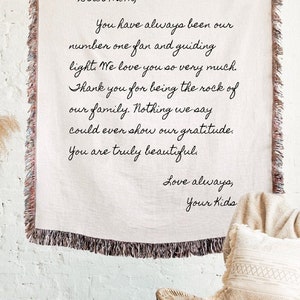 You have always been our
number one fan and guiding
light. We love you so very much.
Thank you for being the rock of
our family. Nothing we say
could ever show our gratitude.
You are truly beautiful.
Love always,
Your Kids